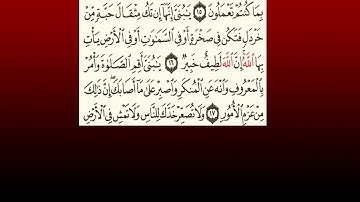 بِمَا كُنتُمْ تَعْمَلُونَ ١٥ يَٰبُنَىَّ إِنَّهَآ إِن تَكُ مِثْقَالَ حَبَّةٍ مِّنْ
خَرْدَلٍ فَتَكُن فِى صَخْرَةٍ أَوْ فِى ٱلسَّمَٰوَٰتِ أَوْ فِى ٱلْأَرْضِ يَأْتِ
بِهَا ٱللَّهُ إِنَّ ٱللَّهَ لَطِيفٌ خَبِيرٌ ١٦ يَٰبُنَىَّ أَقِمِ ٱلصَّلَوٰةَ وَأْمُرْ
بِٱلْمَعْرُوفِ وَٱنْهَ عَنِ ٱلْمُنكَرِ وَٱصْبِرْ عَلَىٰ مَآ أَصَابَكَ إِنَّ ذَٰلِكَ
مِنْ عَزْمِ ٱلْأُمُورِ ١٧ وَلَا تُصَعِّرْ خَدَّكَ لِلنَّاسِ وَلَا تَمْشِ فِى ٱلْأَرْضِ